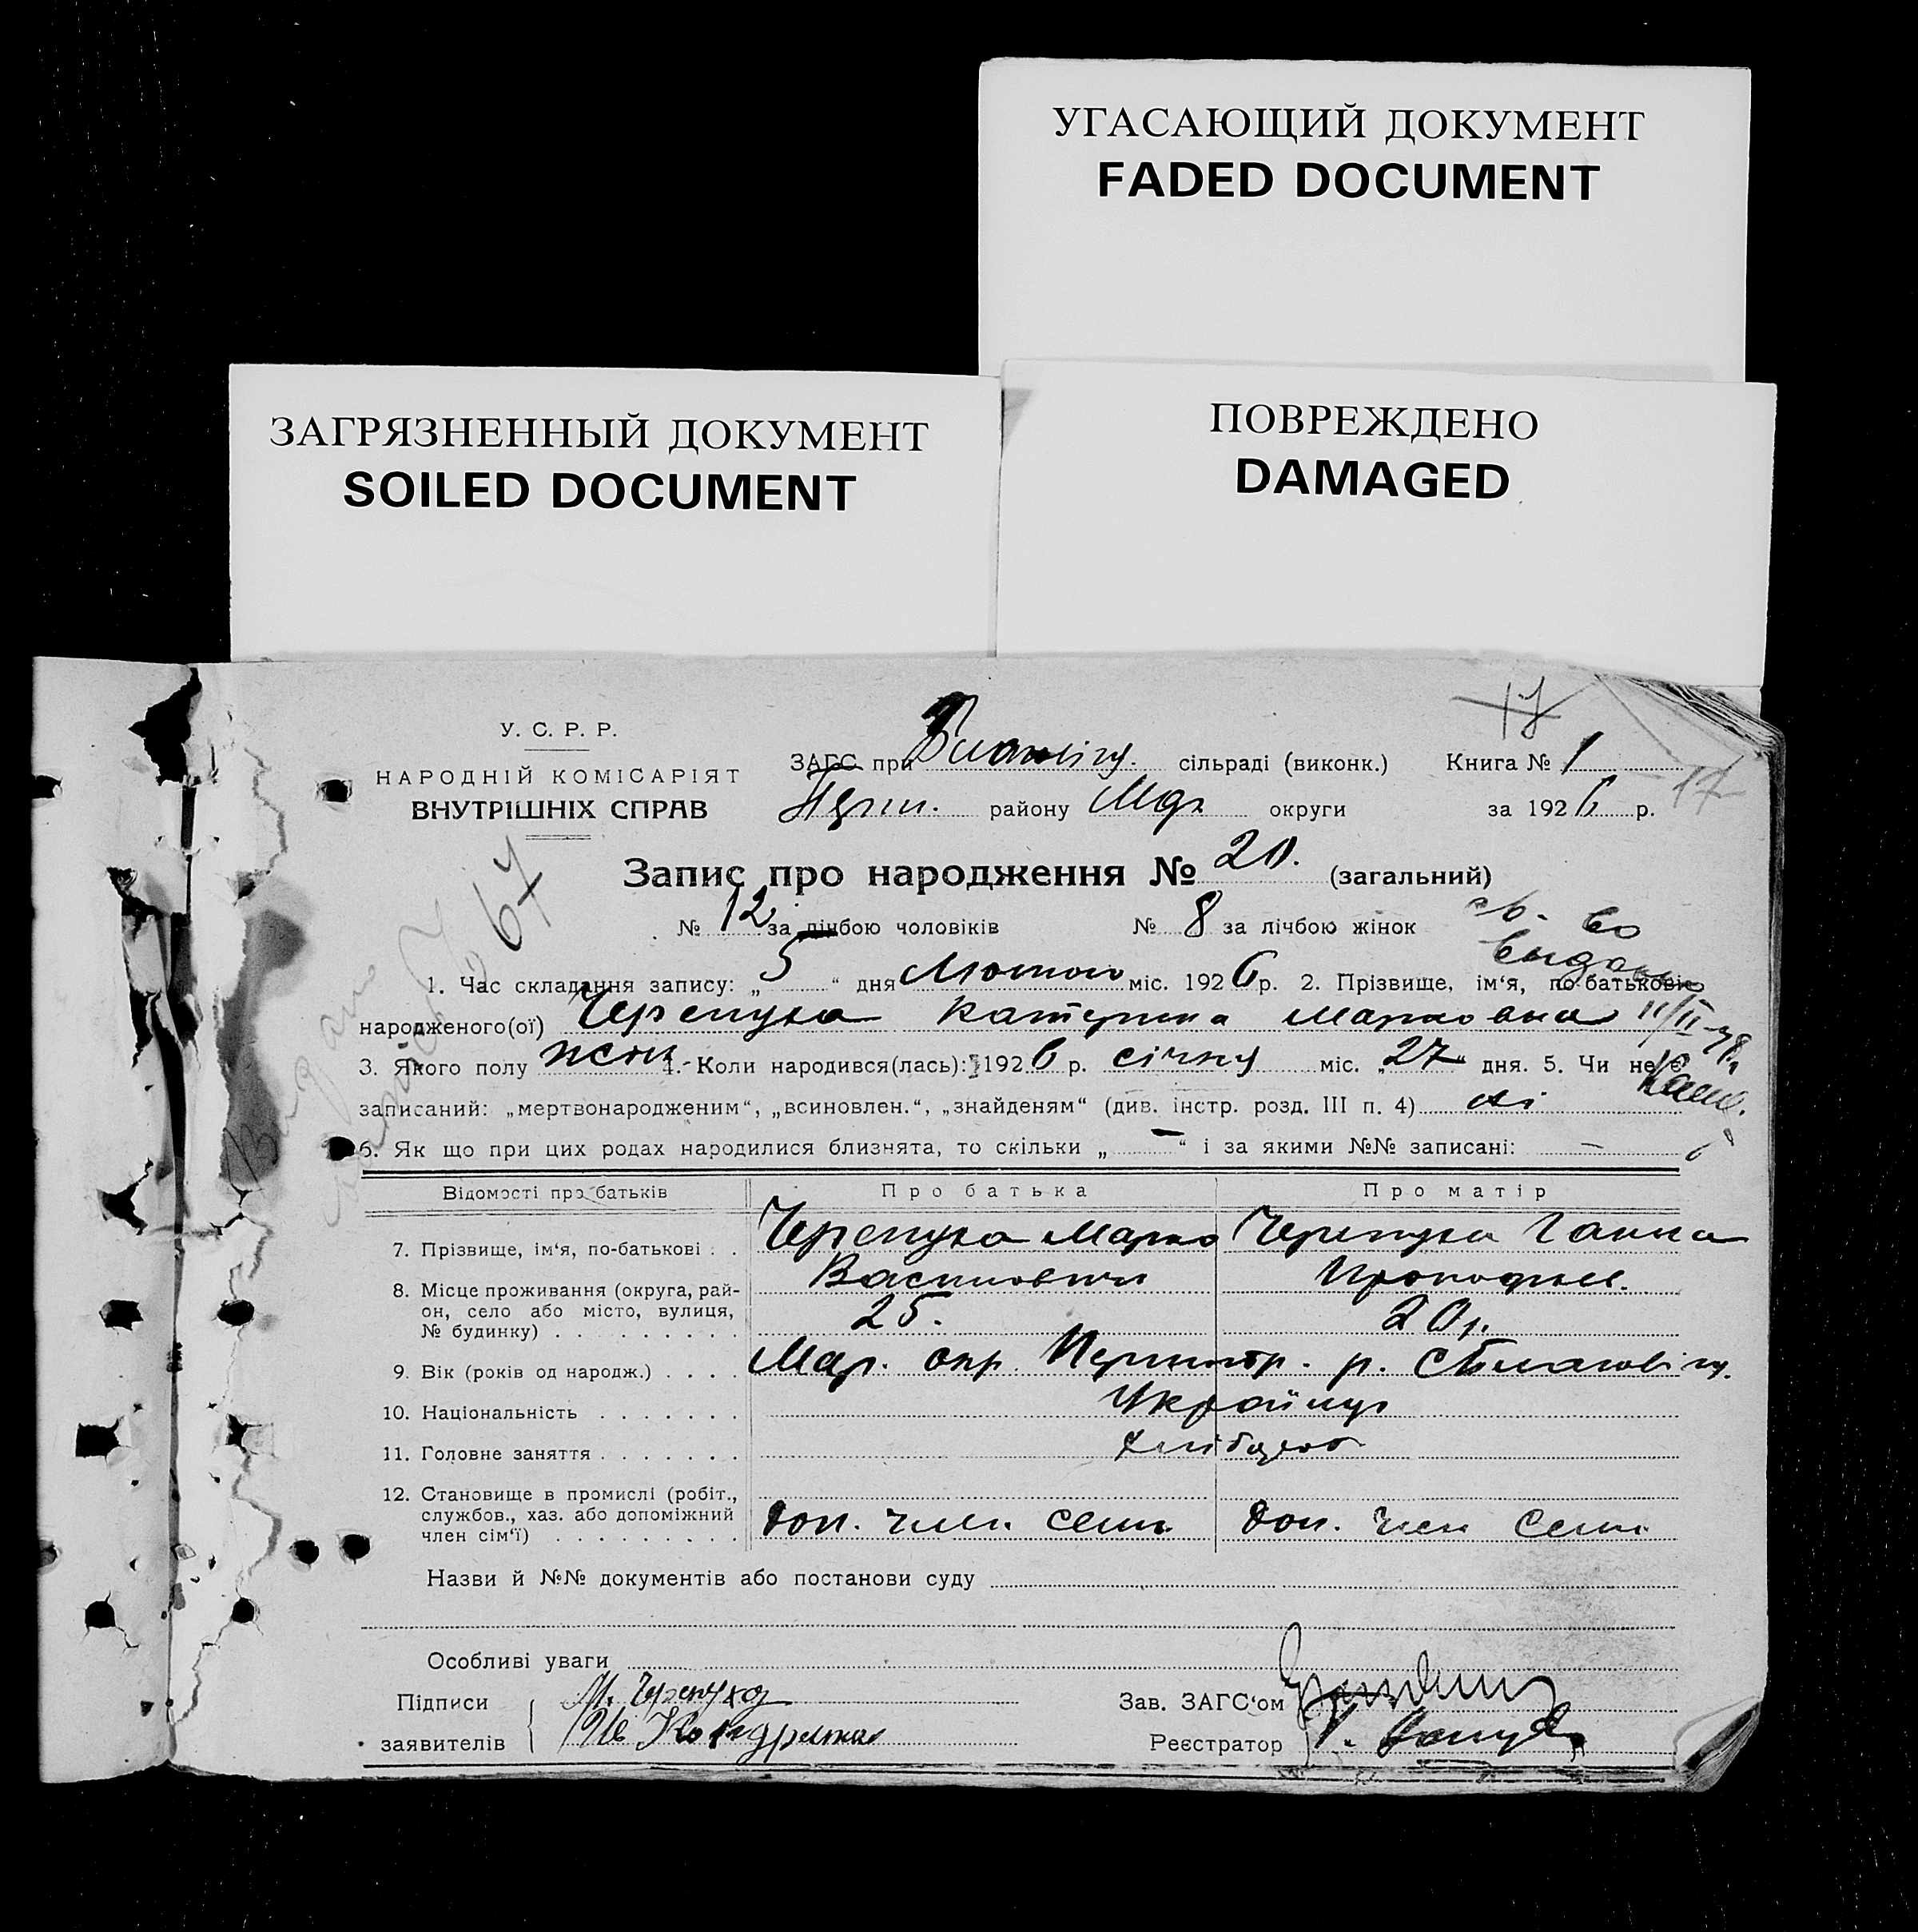 УГАСАЮЩИЙ ДОКУМЕНТ
FADED DOCUMENT
ЗАГРЯЗНЕННЫЙ ДОКУМЕНТ
SOILED DOCUMENT
ПОВРЕЖДЕНО
DAMAGED
17
У. С. Р. Р.
НАРОДНІЙ КОМІСАРІЯТ
ВНУТРІШНІХ СПРАВ
ЗАГС при сільраді (виконк.) Книга № 1
району Мар округи за 1926 р. 17
67
Запис про народження № 20. (загальний)
№ 12 за лічбою чоловіків № 8 за лічбою жінок
св-во
выдано
1. Час складання запису: „5“ дня Лютого міс. 1926 р. 2. Прізвище, ім‘я, по-батькові
народженого(ої) Черепуха Катерина Марковна
3. Якого полу жен. 4. Коли народився(лась): 1926 р. січну міс. „27“ дня. 5. Чи не є
записаний: „мертвонародженим“, „всиновлен.“, „знайденям“ (див. інстр. розд. III п. 4) ні
6. Як що при цих родах народилися близнята, то скільки „ — “ і за якими №№ записані: —
Відомості про батьків Про батька Про матір
7. Прізвище, ім‘я, по-батькові . . Черепуха Марко Черепуха Ганна
Васильович Прокофьев.
8. Місце проживання (округа, рай-
он, село або місто, вулиця,
№ будинку) . . . . . . . . . 25. 20 р.
9. Вік (років од народж.) . . . . Мар. окр. р.
10. Національність . . . . . . . Україну
11. Головне заняття . . . . . . . хлібороб
12. Становище в промислі (робіт.,
службов., хаз. або допоміжний
член сім‘ї) . . . . . . . . . Доп. член семи Доп. член семи
Назви й №№ документів або постанови суду
Особливі уваги
Підписи М. Черепуха Зав. ЗАГС‘ом
заявителів Реєстратор